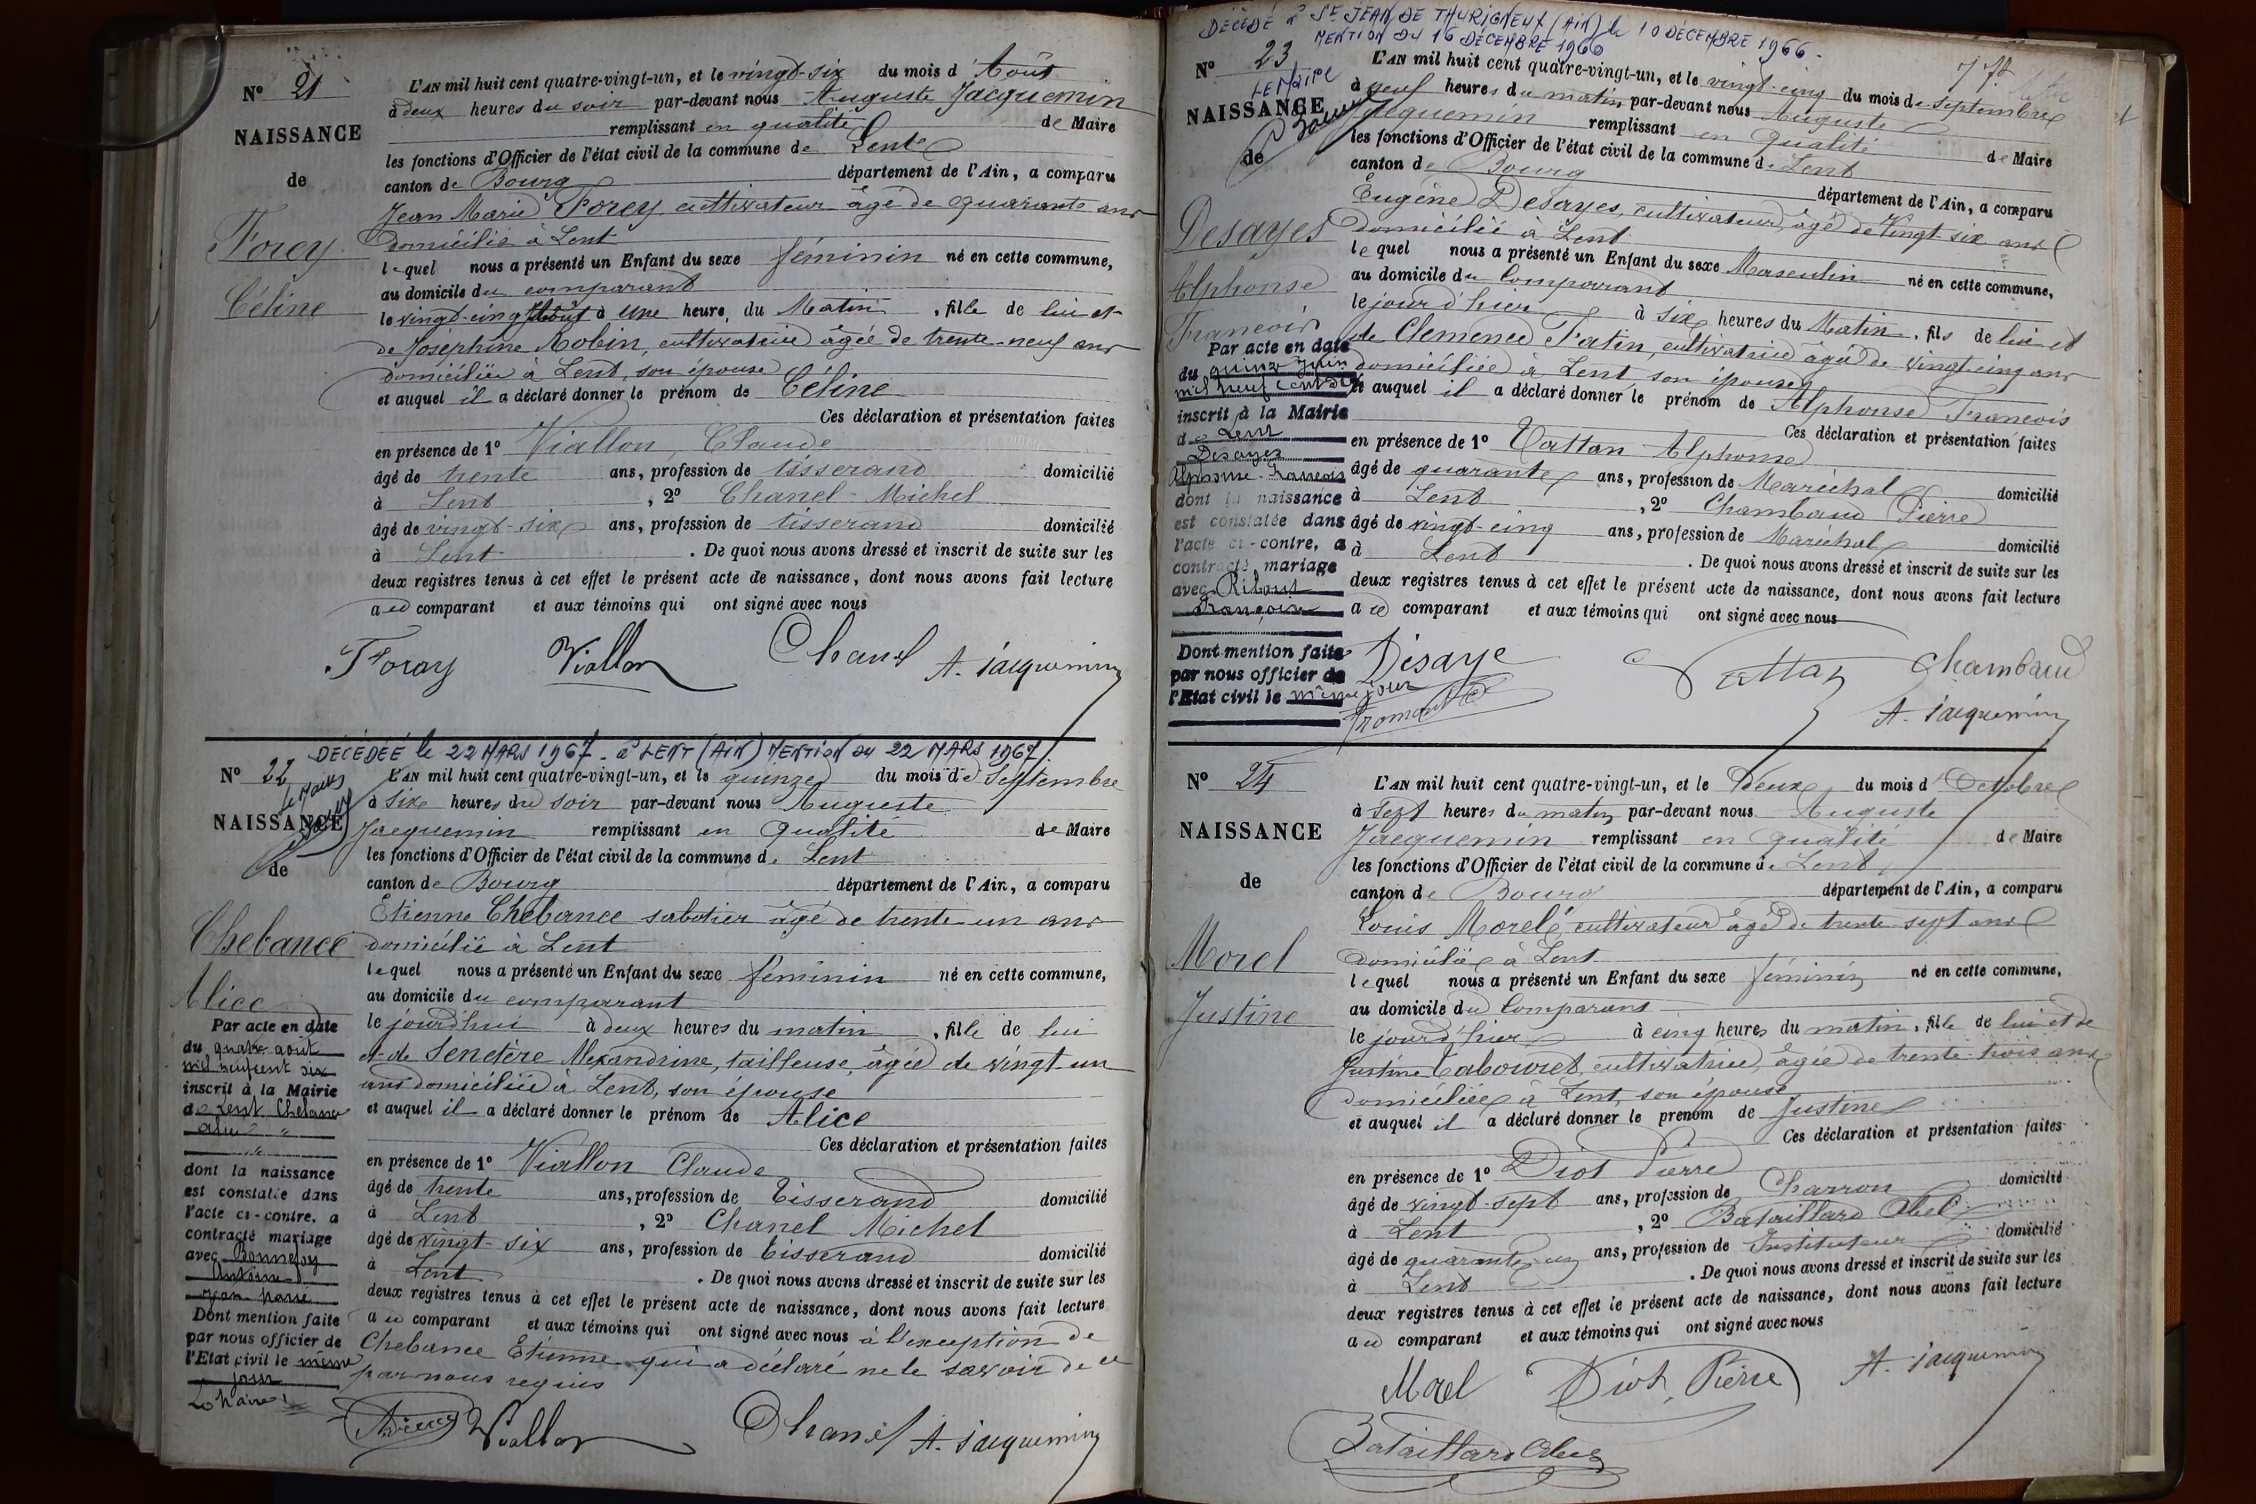 N° 21
NAISSANCE
de
Forey
Céline
L'AN mil huit cent quatre-vingt-un, et le vingt-six du mois d'Août
à deux heures du soir par-devant nous Auguste Jacquemin
remplissant en qualité de Maire
les fonctions d'Officier de l'état civil de la commune de Lent
canton de Bourg département de l'Ain, a comparu
Jean Marie Forey cultivateur âgé de quarante ans
domicilié à Lent
lequel nous a présenté un Enfant du sexe féminin né en cette commune,
au domicile du comparant
le vingt-cinq Août à une heure, du Matin, fille de lui et
de Joséphine Robin, cultivatrice âgée de trente-neuf ans
domiciliée à Lent, son épouse
et auquel il a déclaré donner le prénom de Céline
Ces déclaration et présentation faites
en présence de 1° Viallon, Claude
âgé de trente ans, profession de tisserand domicilié
à Lent, 2° Chanel Michel
âgé de vingt-six ans, profession de tisserand domicilié
à Lent. De quoi nous avons dressé et inscrit de suite sur les
deux registres tenus à cet effet le présent acte de naissance, dont nous avons fait lecture
au comparant et aux témoins qui ont signé avec nous
Foray Viallon Chanel A. Jacquemin
DÉCÉDÉE le 22 MARS 1967 à LENT (AIN) MENTION DU 22 MARS 1967.
N° 22
le Maire
NAISSANCE
de
Chebance
Alice
Par acte en date
du quatre août
mil neuf cent six
inscrit à la Mairie
de Lent Chebance
Alice
dont la naissance
est constatée dans
l'acte ci-contre, a
contracté mariage
avec Bonnefoy
Antoine
Jean Marie
Dont mention faite
par nous officier de
l'Etat civil le même
jour
Le Maire
L'AN mil huit cent quatre-vingt-un, et le quinze du mois de Septembre
à six heures du soir par-devant nous Auguste
Jacquemin remplissant en qualité de Maire
les fonctions d'Officier de l'état civil de la commune de Lent
canton de Bourg département de l'Ain, a comparu
Etienne Chebance sabotier âgé de trente-un ans
domicilié à Lent
lequel nous a présenté un Enfant du sexe féminin né en cette commune,
au domicile du comparant
le jourd'hui à deux heures du matin, fille de lui
et de Senetère Alexandrine, tailleuse, âgée de vingt-un
ans domiciliée à Lent, son épouse
et auquel il a déclaré donner le prénom de Alice
Ces déclaration et présentation faites
en présence de 1° Viallon Claude
âgé de trente ans, profession de Tisserand domicilié
à Lent, 2° Chanel Michel
âgé de vingt-six ans, profession de tisserand domicilié
à Lent. De quoi nous avons dressé et inscrit de suite sur les
deux registres tenus à cet effet le présent acte de naissance, dont nous avons fait lecture
au comparant et aux témoins qui ont signé avec nous à l'exception de
Chebance Etienne qui a déclaré ne le savoir de ce
par nous requis
Viallon Chanel A. Jacquemin
DÉCÉDÉ à St JEAN DE THURIGNEUX (AIN) le 10 DÉCEMBRE 1966.
MENTION DU 16 DÉCEMBRE 1966
N° 23
LE Maire
NAISSANCE
de
Desayes
Alphonse
Francois
Par acte en date
du quinze juin
mil neuf cent
inscrit à la Mairie
de Lent
Desayes
Alphonse Francois
dont la naissance
est constatée dans
l'acte ci-contre, a
contracté mariage
avec Ribout
Françoise
Dont mention faite
par nous officier de
l'Etat civil le même jour
L'AN mil huit cent quatre-vingt-un, et le vingt-cinq du mois de septembre
à neuf heures du matin par-devant nous Auguste
Jacquemin remplissant en qualité de Maire
les fonctions d'Officier de l'état civil de la commune de Lent
canton de Bourg département de l'Ain, a comparu
Eugène Desayes, cultivateur, âgé de vingt-six ans
domicilié à Lent
lequel nous a présenté un Enfant du sexe Masculin né en cette commune,
au domicile du Comparant
le jour d'hier à six heures du Matin, fils de lui et
de Clemence Fatin, cultivatrice âgée de vingt-cinq ans
domiciliée à Lent son épouse
et auquel il a déclaré donner le prénom de Alphonse Francois
Ces déclaration et présentation faites
en présence de 1° Vattan Alphonse
âgé de quarante ans, profession de Maréchal domicilié
à Lent, 2° Chambaud Pierre
âgé de vingt-cinq ans, profession de Maréchal domicilié
à Lent. De quoi nous avons dressé et inscrit de suite sur les
deux registres tenus à cet effet le présent acte de naissance, dont nous avons fait lecture
au comparant et aux témoins qui ont signé avec nous
Desaye Vattan Chambaud
A. Jacquemin
N° 24
NAISSANCE
de
Morel
Justine
L'AN mil huit cent quatre-vingt-un, et le Deux du mois d'Octobre
à sept heures du matin par-devant nous Auguste
Jacquemin remplissant en qualité de Maire
les fonctions d'Officier de l'état civil de la commune de Lent
canton de Bourg département de l'Ain, a comparu
Louis Morel, cultivateur âgé de trente-sept ans
domicilié à Lent
lequel nous a présenté un Enfant du sexe féminin né en cette commune,
au domicile du Comparant
le jour d'hier à cinq heures du matin, fille de lui et de
Justine Tabouret, cultivatrice, âgée de trente-trois ans
domiciliée à Lent, son épouse
et auquel il a déclaré donner le prénom de Justine
Ces déclaration et présentation faites
en présence de 1° Diot Pierre
âgé de vingt-sept ans, profession de Charron domicilié
à Lent, 2° Bataillard Abel
âgé de quarante-un ans, profession de Instituteur domicilié
à Lent. De quoi nous avons dressé et inscrit de suite sur les
deux registres tenus à cet effet le présent acte de naissance, dont nous avons fait lecture
au comparant et aux témoins qui ont signé avec nous
Morel Diot Pierre A. Jacquemin
Bataillard Abel